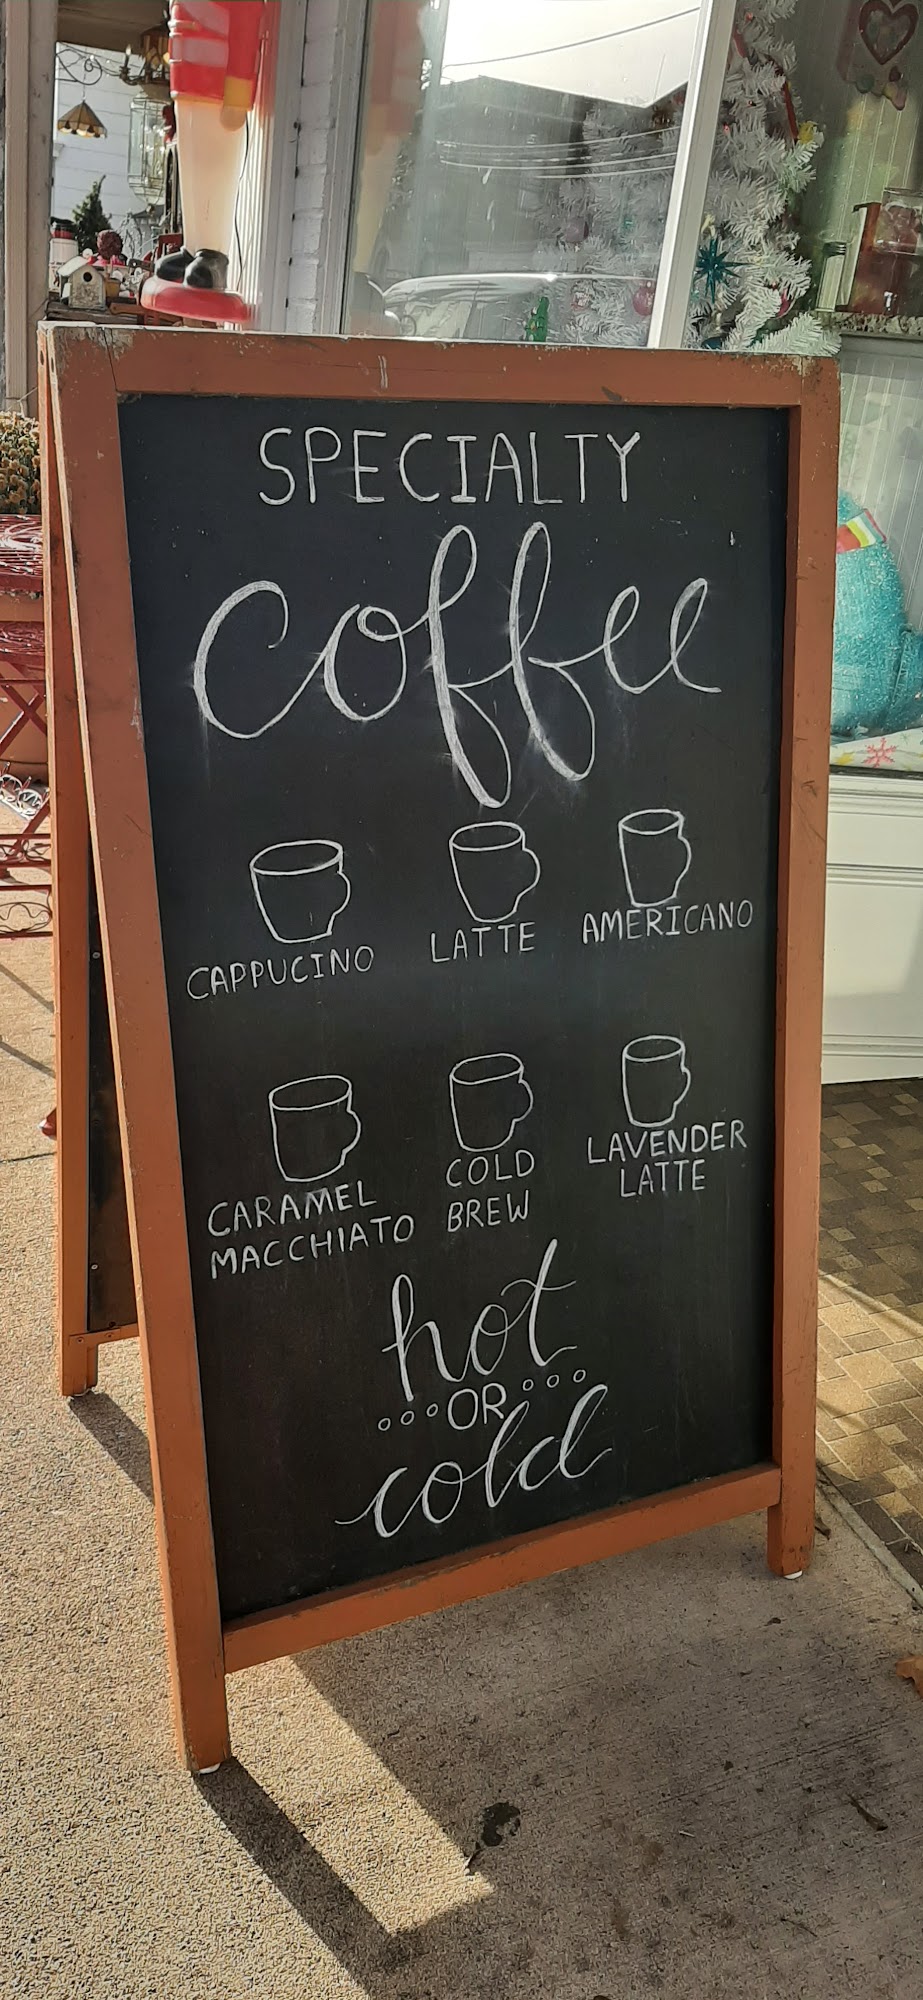 SPECIALTY
coffee
CAPPUCINO
LATTE
AMERICANO
CARAMEL
MACCHIATO
COLD
BREW
LAVENDER
LATTE
hot
OR
cold